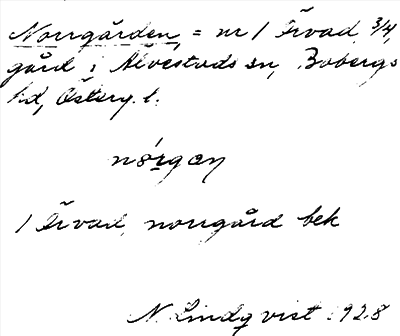 Norrgården, = nr 1 Årvad, 3/4,
gård i Alvestads sn, Bobergs
hd, Österg. l.
nørgan
1 Årvad, norrgård bek
N. Lindqvist 1928